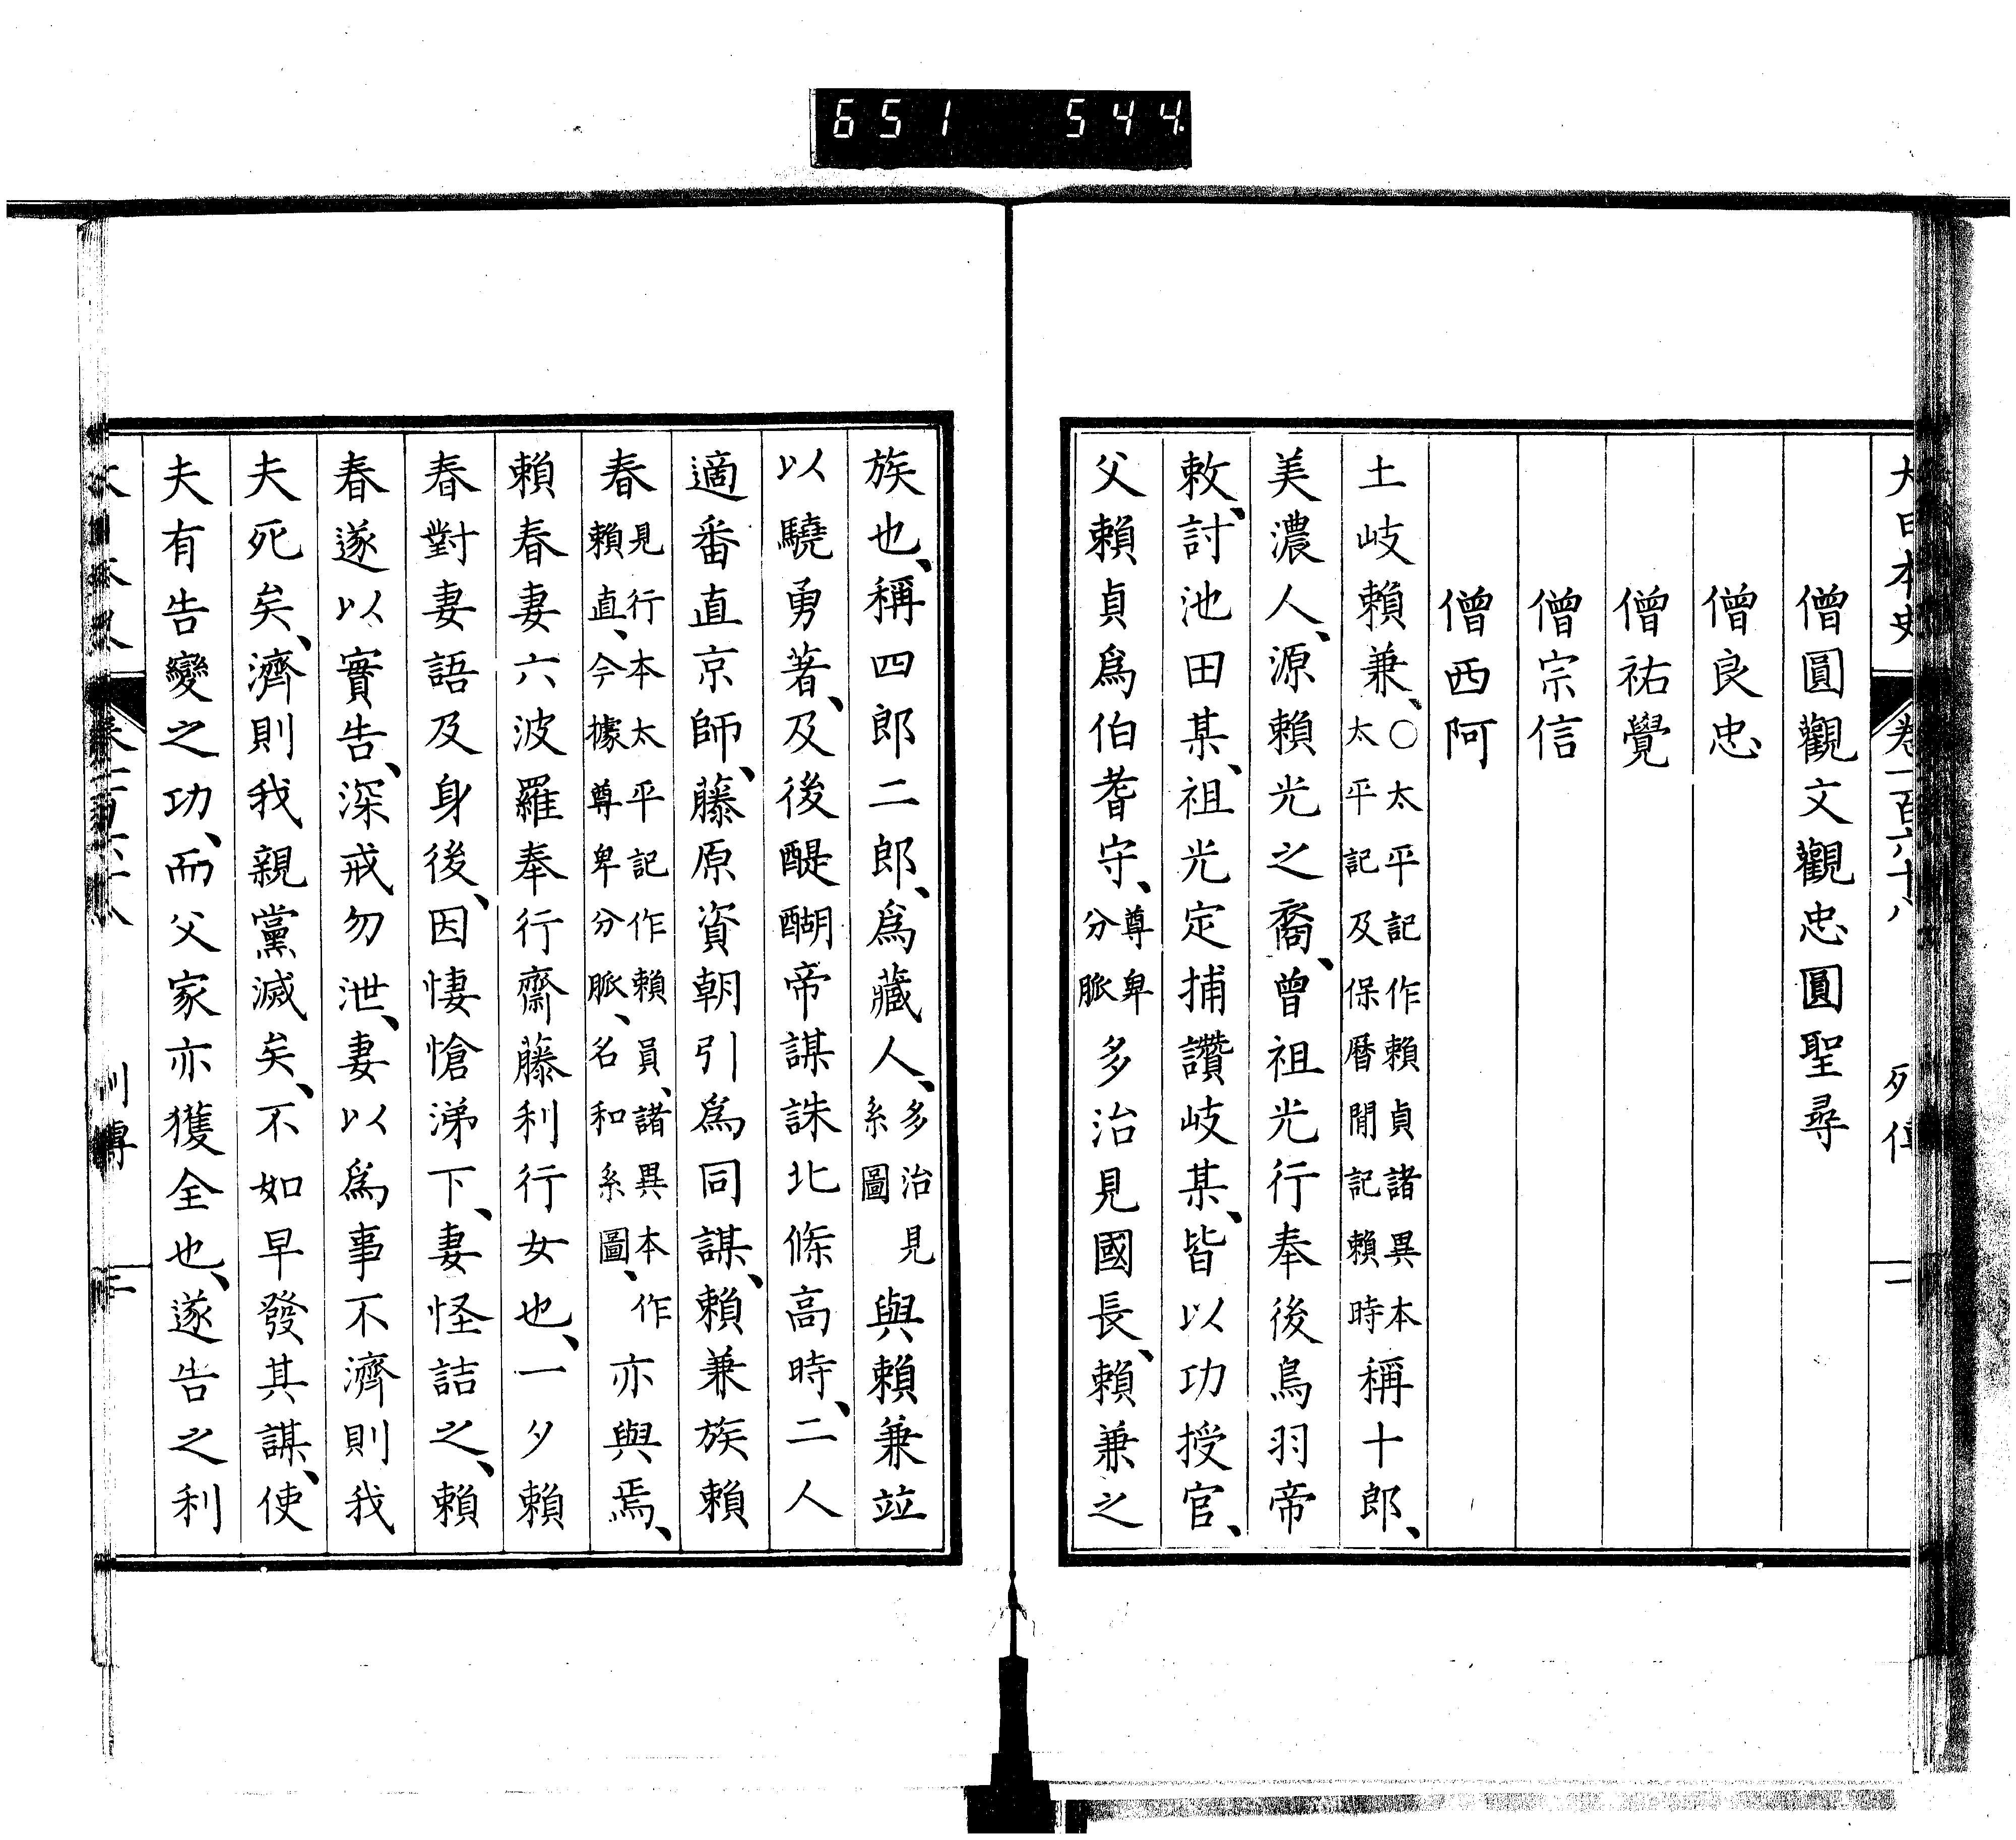 651 544
大日本史 卷一百六十八 列傳 二
僧圓觀文觀忠圓聖尋
僧良忠
僧祐覺
僧宗信
僧西阿
土岐賴兼、○太平記作賴貞諸異本太平記及保曆間記賴時稱十郎、
美濃人、源賴光之裔、曾祖光行奉後鳥羽帝
敕、討池田某、祖光定捕讚岐某、皆以功授官、
父賴貞爲伯耆守、尊卑分脈多治見國長、賴兼之
族也、稱四郎二郎、爲藏人、多治見系圖與賴兼竝
以驍勇著、及後醍醐帝謀誅北條高時、二人
適番直京師、藤原資朝引爲同謀、賴兼族賴
春見行本太平記作賴員、諸異本作賴直、今據尊卑分脈、名和系圖、亦與焉、
賴春妻六波羅奉行齋藤利行女也、一夕賴
春對妻語及身後、因悽愴涕下、妻怪詰之、賴
春遂以實告、深戒勿泄、妻以爲事不濟則我
夫死矣、濟則我親黨滅矣、不如早發其謀、使
夫有告變之功、而父家亦獲全也、遂告之利